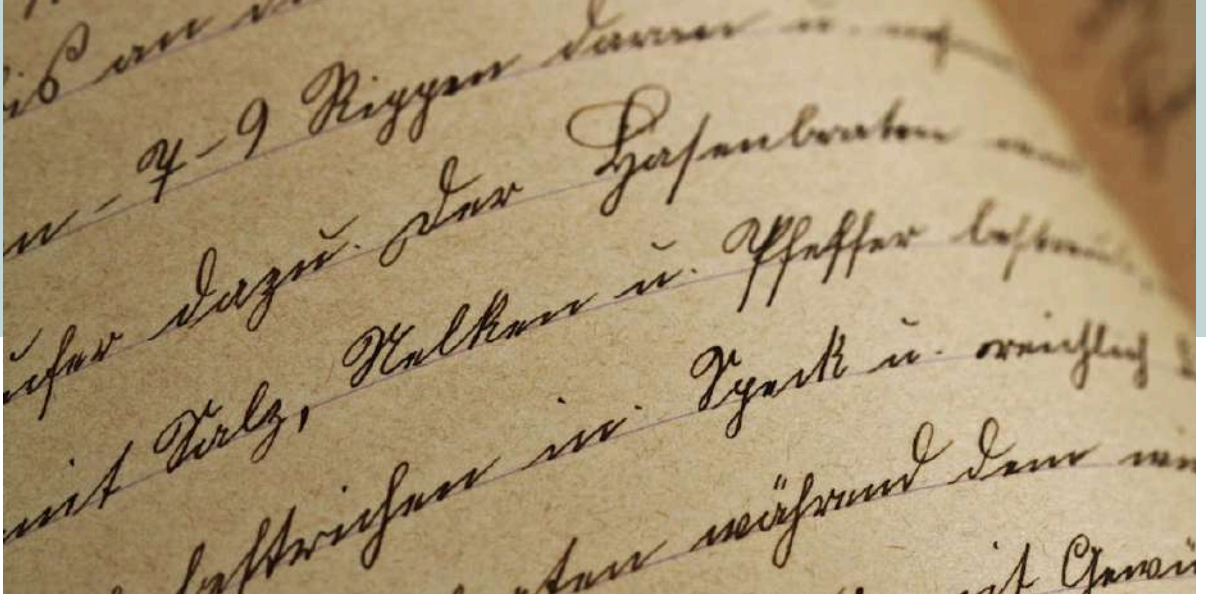 bis an
7-9 Rippen daran u.
dazu. Der Hasenbraten
mit Salz, Nelken u. Pfeffer bestreu
bestrichen in Speck u. reichlich
während dem
mit Gewü